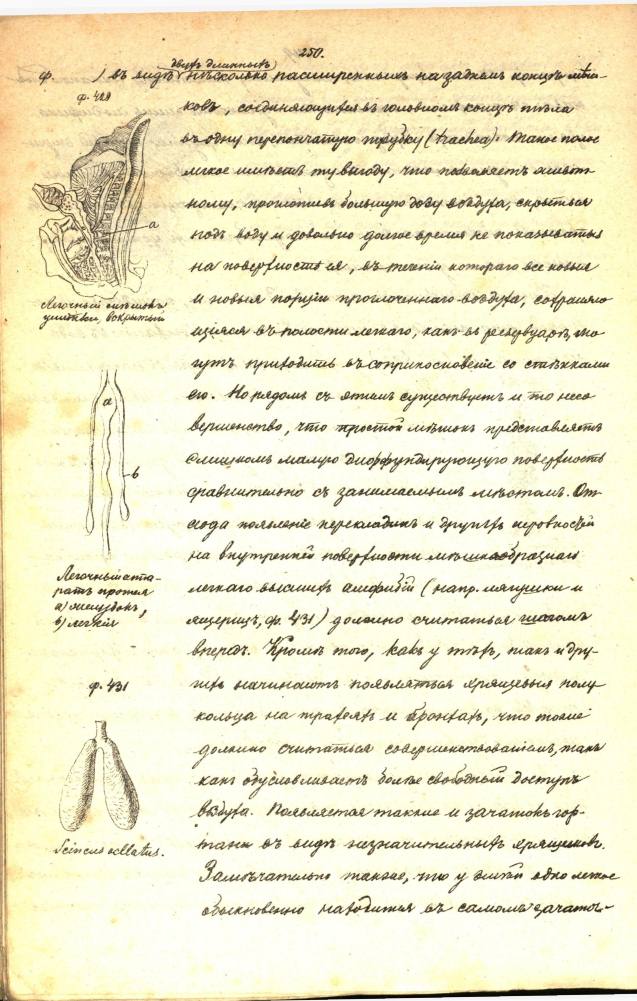 250.
двухъ длинныхъ
ф. ) въ видѣ нѣсколько расширенныхъ на заднемъ концѣ мѣш-
ф. 429
ковъ, соединяющихся въ головномъ концѣ тѣла
въ одну перепончатую трубку (trachea). Такое полое
легкое имѣетъ ту выгоду, что позволяетъ живот-
ному, проглотивъ большую дозу воздуха, скрыться
подъ воду и довольно долгое время не показываться
на поверхность ея, въ теченіи котораго все новыя
и новыя порціи проглоченнаго воздуха, сохраняю-
щіяся въ полости легкаго, какъ въ резервуарѣ, мо
гутъ приходить въ соприкосновеніе со стѣнками
его. Но рядомъ съ этимъ существуетъ и то несо
вершенство, что простой мѣшокъ представляетъ
слишкомъ малую диффундирующую поверхность
сравнительно съ занимаемымъ мѣстомъ. От-
сюда появленіе перекладинъ и другихъ неровностей
на внутренней поверхности мѣшкообразнаго
легкаго высшихъ амфибій (напр. лягушки и
ящерицъ, ф. 431) должно считаться шагомъ
впередъ. Кромѣ того, какъ у тѣхъ, такъ и дру-
гихъ начинаютъ появляться хрящевыя полу
кольца на трахеяхъ и бронхахъ, что тоже
должно считаться совершенствованіемъ, такъ
какъ обусловливаетъ болѣе свободный доступъ
воздуха. Появляется также и зачатокъ гор-
тани въ видѣ незначительныхъ хрящиковъ.
Замѣчательно также, что у змѣй одно легкое
обыкновенно находится въ самомъ зачаточ-
a
Легочный мѣшокъ
улитки, вскрытый
a
b
Легочный аппа-
ратъ протея
a) желудокъ,
b) легкія
ф. 431
Scincus ocellatus.